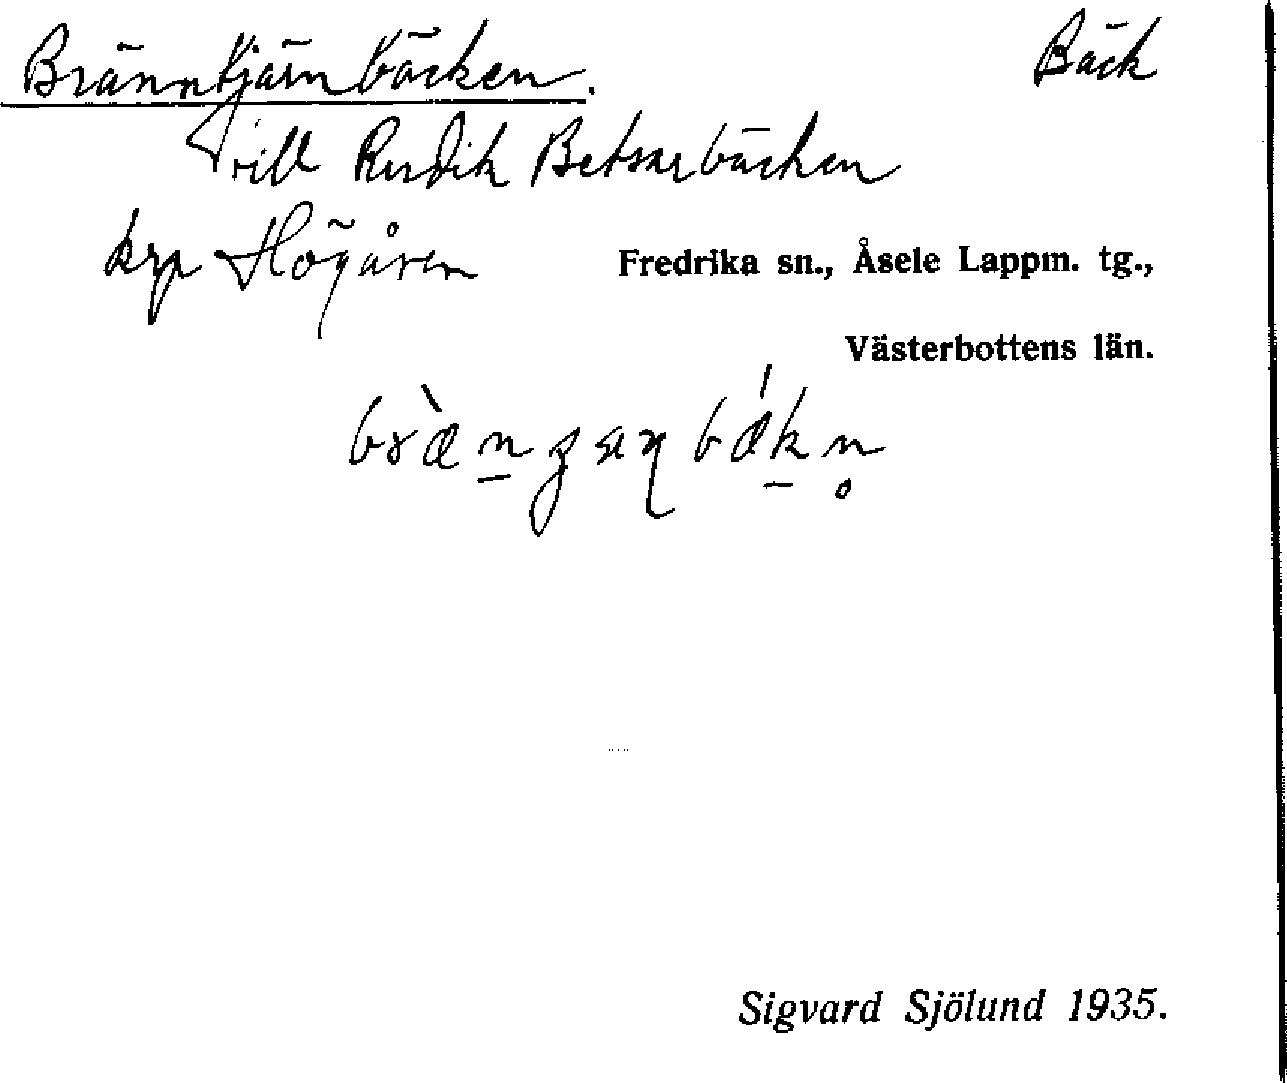 Bränntjärnbäcken. Bäck
Till Betsarbäcken
Högåsen Fredrika sn., Åsele Lappm. tg.,
Västerbottens län.
Sigvard Sjölund 1935.